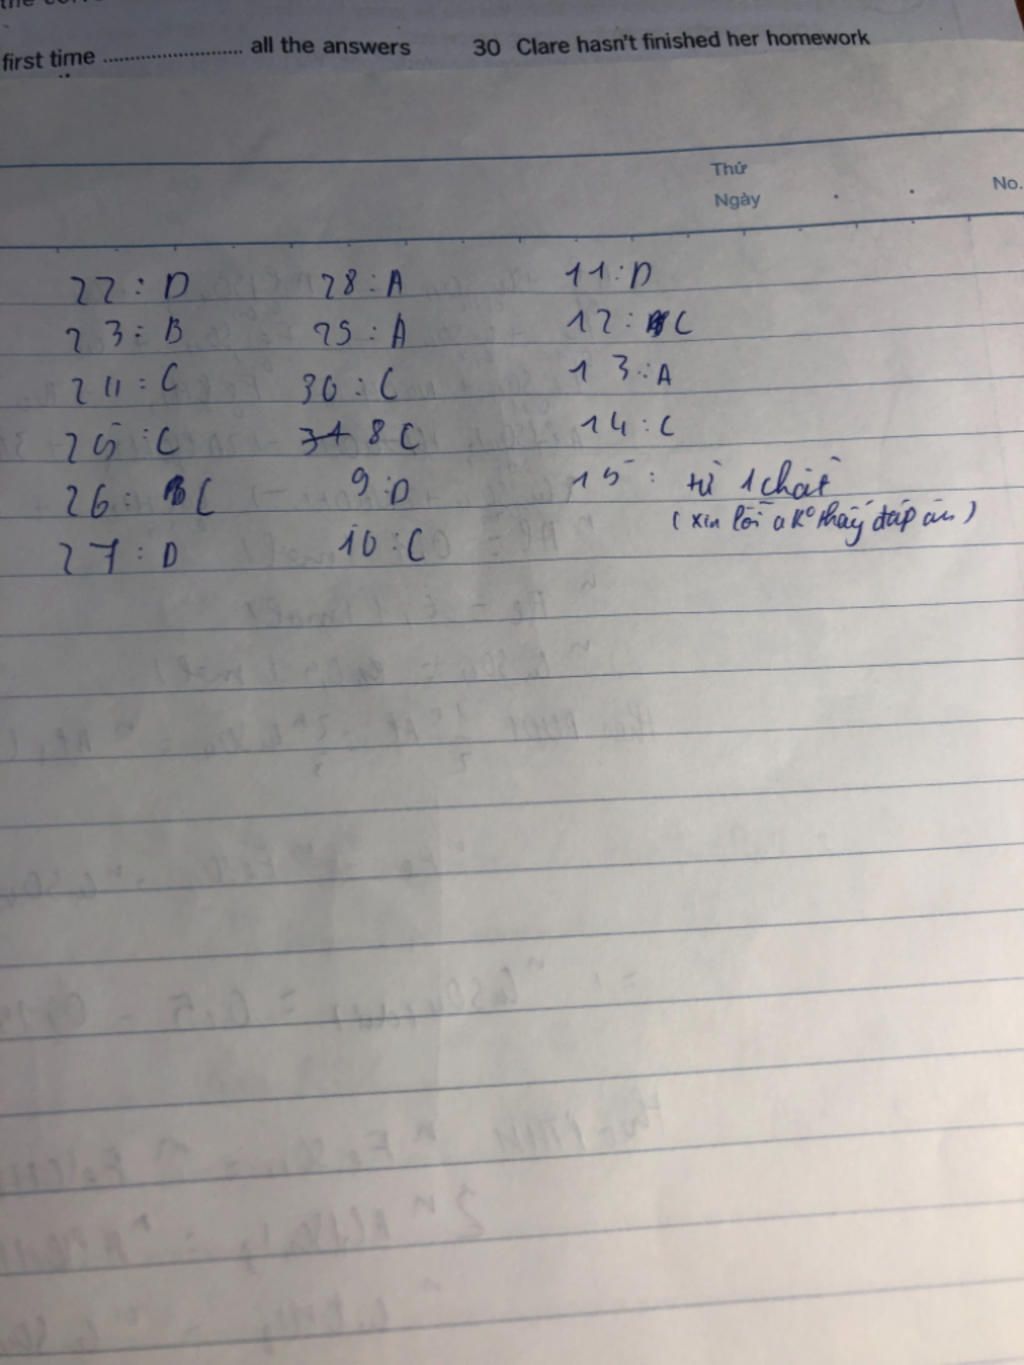 first time ........................ all the answers
30 Clare hasn't finished her homework
Thứ
Ngày
No.
22 : D
23 : B
24 : C
25 : C
26 : C
27 : D
28 : A
29 : A
30 : C
8 C
9 : D
10 : C
11 : D
12 : C
13 : A
14 : C
15 : từ 1 chất
(xin lỗi a ko thấy đáp án)